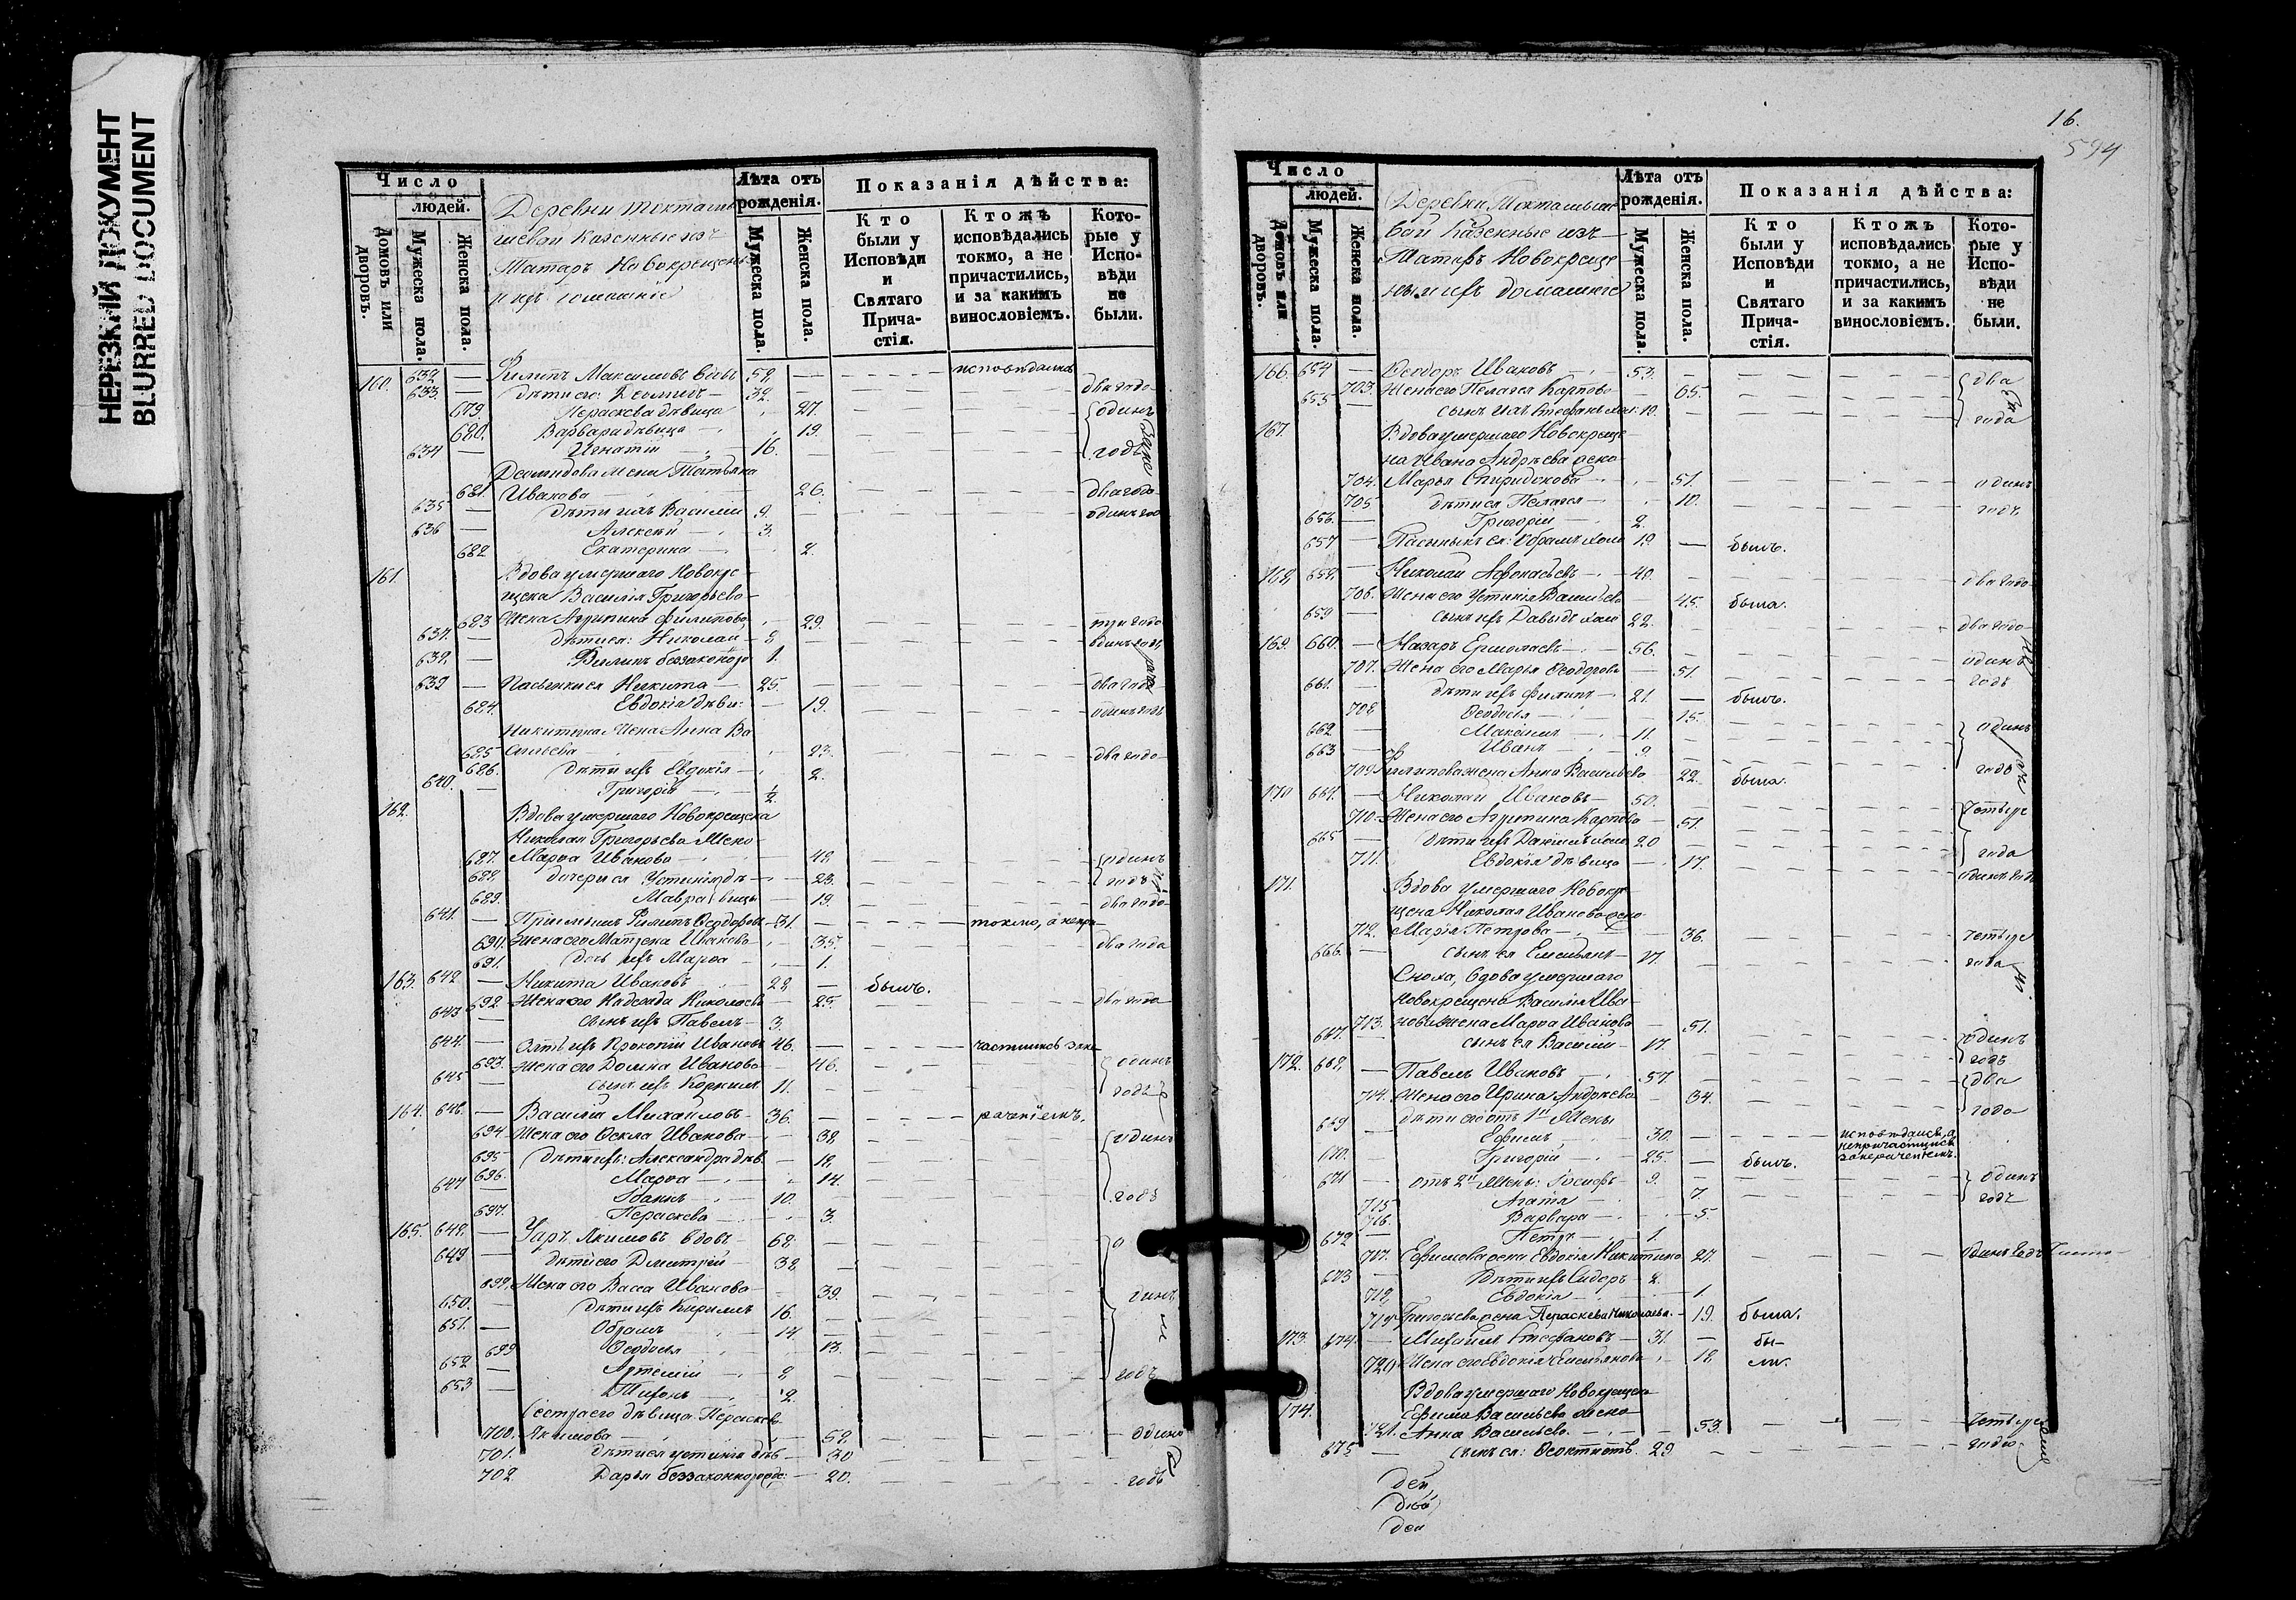 НЕРЕЗКИЙ ДОКУМЕНТ
BLURRED DOCUMENT
Число
людей.
Домовъ или дворовъ.
Мужеска пола.
Женска пола.
Деревни Токталы
шевой казенные изъ
Татаръ Новокрещены
и ихъ домашніе
Лѣта отъ рожденія.
Мужеска пола.
Женска пола.
Показанія дѣйства:
Кто были у Исповѣди и Святаго Причастія.
Ктожъ исповѣдались токмо, а не причастились, и за какимъ винословіемъ.
Которые у Исповѣди не были.
160. 632 — Филипъ Максимовъ вдовъ 52. — исповѣдались
633. — дѣти его: — 32. два года
679. Параскева дѣвица 27. одинъ
680. Варвара дѣвица 19.
634 — Игнатій 16. годъ
жена Татьяна
681. Иванова 26. два года
635 — дѣти ихъ Василій 9. одинъ год
636 — Алексѣй 3.
682 Екатерина 2.
161. Вдова умершаго Новокре
щена Василія Григорьева
683 жена Агрипина Филипова 29. три года
637. — дѣти ея: Николай 8 одинъ годъ
638. — Филипъ 1.
639 — Пасынки ея Никита 25. два года
684. Евдокія дѣви: 19. одинъ годъ
Никитина жена Анна Ва
685 сильева 23. два года
686. дѣти ихъ Евдокія 2.
640. — Григорій ½
162. Вдова умершаго Новокрещена
Николая Григорьева жена
687. Марѳа Иванова 48 одинъ
688. дочери ея Устинія дѣ 23. годъ
689. Мавра вицы 19. два года
641. — Филипъ Ѳеодоровъ 31. токмо, а непри
690. жена его Матрена Иванова 35. два года
691. дочь ихъ Марѳа 1.
163. 642 — Никита Ивановъ 28 — былъ.
692 жена его Надежда Николаева 25. два года
643 — сынъ ихъ Павелъ 3.
644. — Зять ихъ Прокопій Ивановъ 46. частились за не
693. жена его Домна Иванова 46. одинъ
645 — сынъ ихъ Корнилъ 11. годъ
164. 646. — Василій Михайловъ 36. раченіемъ.
694 жена его Ѳекла Иванова 38 одинъ
695 дѣти ихъ: Александра дѣв. 18
696. Марѳа 14.
647 — Іоаннъ 10. годъ
697. Параскева 3.
165. 648. — Уаръ Якимовъ вдовъ 68. о
649 — дѣти его Дмитрій 38
698. жена его Васса Иванова 39. динъ
650. — дѣти ихъ Кирилъ 16.
651. — Обрамъ 14
699 Ѳеодосья 13.
652 — Артемій 8 годъ
653 — Тихонъ 2.
Сестра его дѣвица Параскева
700. Якимова 52. одинъ
701. дѣти ея Устинія дѣв 30
702 Дарья 20. годъ
16.
594
Число
людей.
Домовъ или дворовъ.
Мужеска пола.
Женска пола.
Деревни Токталыше
вой казенные изъ
Татаръ Новокреще
ны и ихъ домашніе
Лѣта отъ рожденія.
Мужеска пола.
Женска пола.
Показанія дѣйства:
Кто были у Исповѣди и Святаго Причастія.
Ктожъ исповѣдались токмо, а не причастились, и за какимъ винословіемъ.
Которые у Исповѣди не были.
166. 654 — Ѳеодоръ Ивановъ 53. два
703. жена его Пелагея Карпова 65.
655 — сынъ ихъ Стефанъ 18. года
167. Вдова умершаго Новокреще
на Ивана Андрѣева жена
704. Марья Спиридонова 51. одинъ
705 дѣти ея Пелагея 10. годъ
656. — Григорій 2.
657 — Пасынокъ ея: Обрамъ 19. — былъ.
168. 658. — Николай Аѳонасьевъ 40. два года
706. жена его Устинія Васильева 45. была.
659 — сынъ ихъ Давыдъ 22. два года
169. 660. — Назаръ Ермолаевъ 56. одинъ
707. жена его Марья Ѳеодорова 51. годъ
661. — дѣти ихъ Филипъ 21. — былъ.
708 Ѳеодосія 15.
662 — Максимъ 11. одинъ
663 — Иванъ 9.
709 Филипова жена Анна Васильева 22. была. годъ
170 664. — Николай Ивановъ 50. Четыре
710. жена его Агрипина Карпова 51.
665 — дѣти ихъ Даніилъ 20 года
711. Евдокія дѣвица 17. одинъ годъ
171. Вдова умершаго Новокре
щена Николая Иванова жена
712. Марія Петрова 36. четыре
666. — сынъ ея Емельянъ 17. года
Сноха, вдова умершаго
новокрещена Василія Ива
713. нова жена Марѳа Иванова 51. одинъ
667. — сынъ ея Василій 17. годъ
172. 668. — Павелъ Ивановъ 57. два
714. жена его Ирина Андрѣева 34. года
669 — дѣти его отъ 1й жены
Ефимъ 30. исповѣдался, а непричастился за нераченіемъ.
670. — Григорій 25. — былъ.
671 — отъ 2й жены: Іосифъ 9. одинъ
715 Агатія 7. годъ
716. Варвара 5.
672 — Петръ 1.
717. Ефимова жена Евдокія Никитина 27. одинъ годъ
673 — дѣти ихъ Сидоръ 2.
718. Евдокія 1
719 Григорьева жена Параскева Николаева 19. была.
173. 674. — Михаилъ Стефановъ 31. — бы-
720 жена его Евдокія Емельянова 18 ли.
174. Вдова умершаго Новокрещена
Ефима Васильева жена
721. Анна Васильева 53. Четыре
675 — сынъ ея: Ѳеоктистъ 29. года